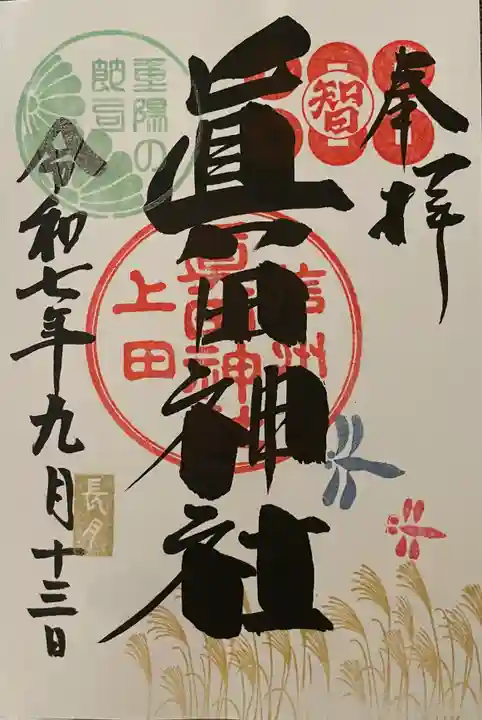 奉拝
智
眞田神社
信州
眞田神社
上田
重陽の
節句
令和七年九月十三日
長月